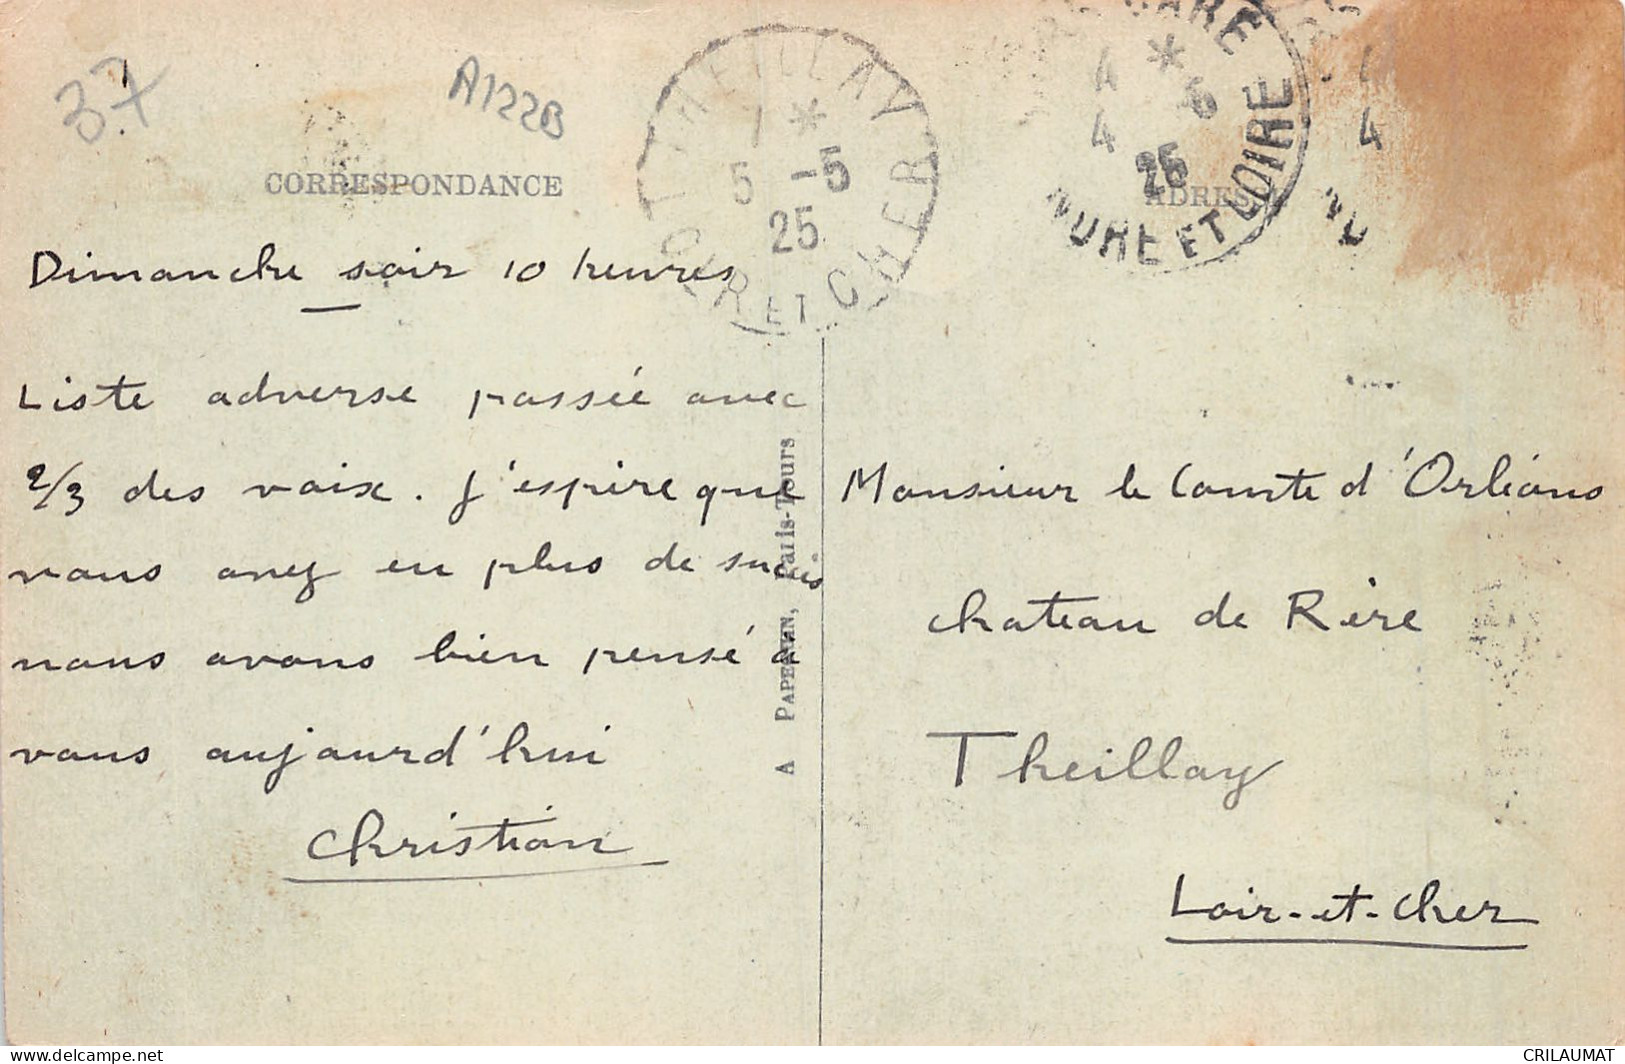 37
A122B
CORRESPONDANCE
THEILLAY
7 *
5 -5
25
LOIR ET CHER
GARE
4 *
4 6
25
INDRE ET LOIRE
4
4
ADRESSE
Dimanche soir 10 heures
Liste adverse passée avec
2/3 des voix. J'espère que
vous avez eu plus de succès
nous avons bien pensé à
vous aujourd'hui
Christian
A PAPEGHIN, Paris-Tours
Monsieur le Comte d'Orléans
château de Rère
Theillay
Loir-et-Cher
CRILAUMAT
delcampe.net